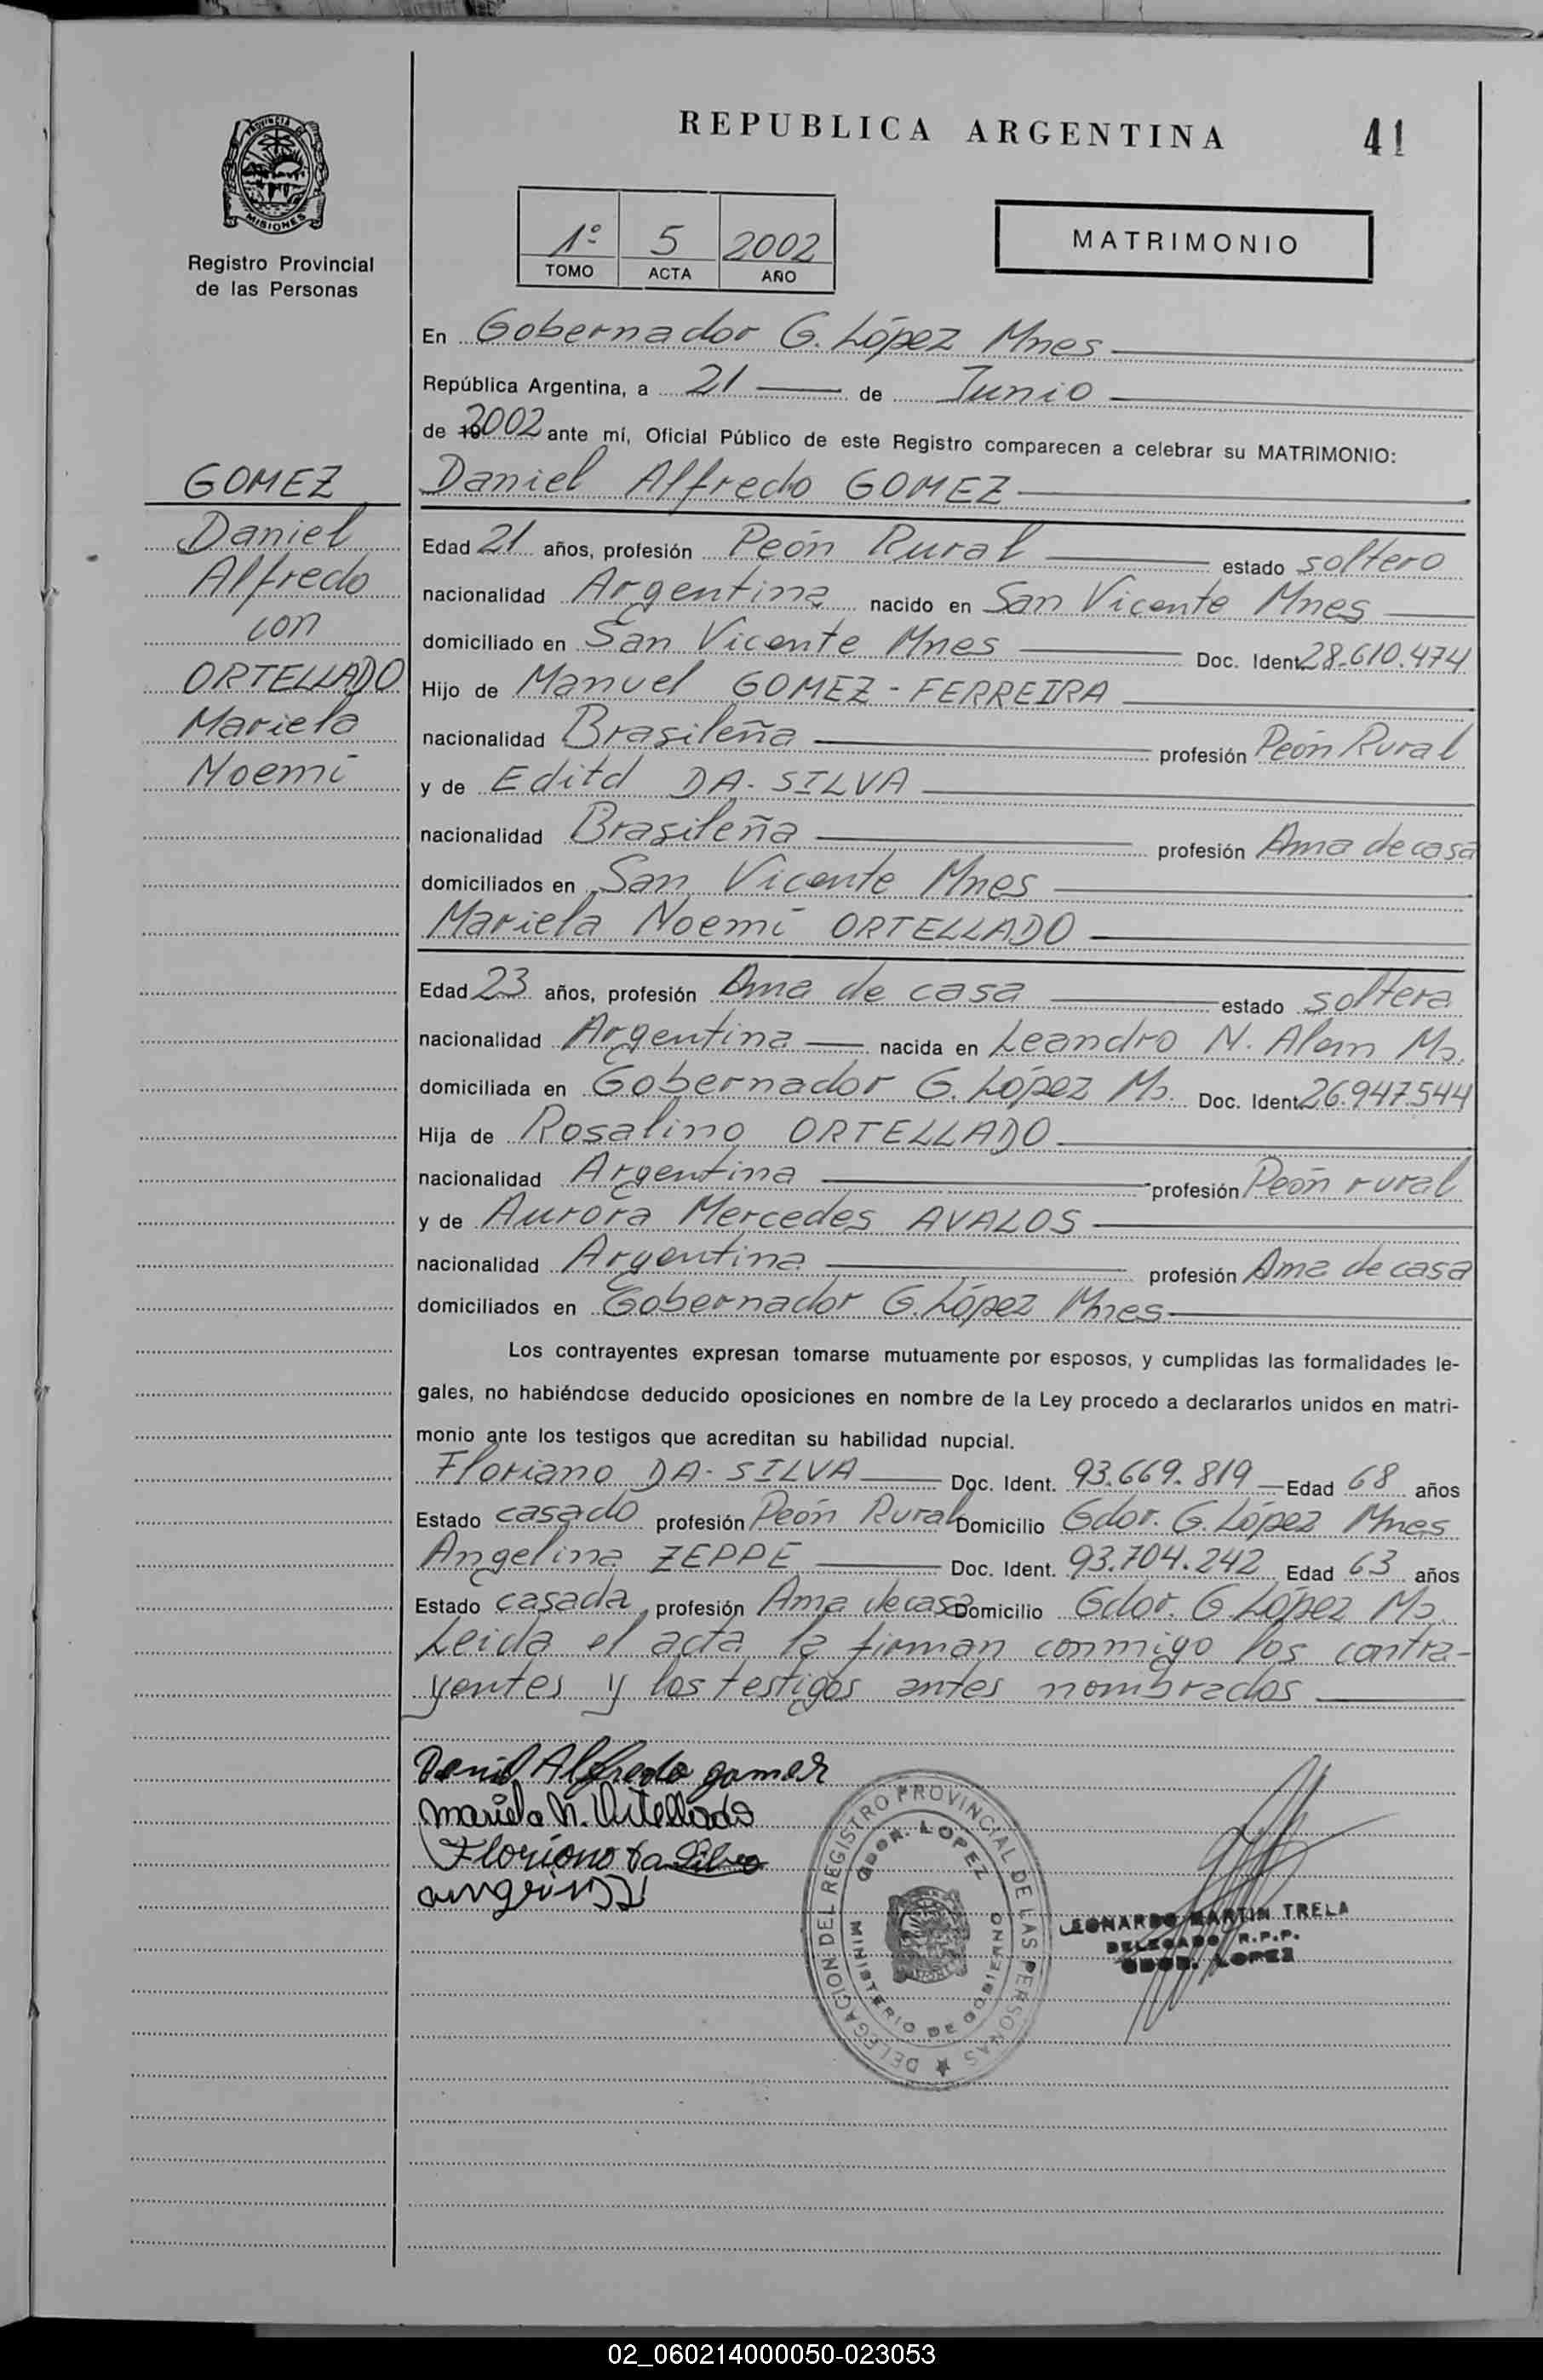 REPUBLICA ARGENTINA
41
PROVINCIA DE
MISIONES
Registro Provincial
de las Personas
1º 5 2002
TOMO ACTA AÑO
MATRIMONIO
En Gobernador G. López Mnes
República Argentina, a 21 de Junio
de 2002 ante mí, Oficial Público de este Registro comparecen a celebrar su MATRIMONIO:
GOMEZ
Daniel
Alfredo
con
ORTELLADO
Mariela
Noemi
Daniel Alfredo GOMEZ
Edad 21 años, profesión Peón Rural estado soltero
nacionalidad Argentina nacido en San Vicente Mnes
domiciliado en San Vicente Mnes Doc. Ident. 28.610.474
Hijo de Manuel GOMEZ - FERREIRA
nacionalidad Brasileña profesión Peón Rural
y de Editd DA-SILVA
nacionalidad Brasileña profesión Ama de casa
domiciliados en San Vicente Mnes
Mariela Noemi ORTELLADO
Edad 23 años, profesión Ama de casa estado soltera
nacionalidad Argentina nacida en Leandro N. Alem Ms.
domiciliada en Gobernador G. López Ms. Doc. Ident. 26.947.544
Hija de Rosalino ORTELLADO
nacionalidad Argentina profesión Peón rural
y de Aurora Mercedes AVALOS
nacionalidad Argentina profesión Ama de casa
domiciliados en Gobernador G. López Mnes
Los contrayentes expresan tomarse mutuamente por esposos, y cumplidas las formalidades le-
gales, no habiéndose deducido oposiciones en nombre de la Ley procedo a declararlos unidos en matri-
monio ante los testigos que acreditan su habilidad nupcial.
Floriano DA-SILVA Doc. Ident. 93.669.819 Edad 68 años
Estado casado profesión Peón Rural Domicilio Gdor. G. López Mnes
Angelina ZEPPE Doc. Ident. 93.704.242 Edad 63 años
Estado casada profesión Ama de casa Domicilio Gdor. G. López Ms.
Leida el acta la firman conmigo los contra-
yentes y los testigos antes nombrados
Daniel Alfredo gomez
Mariela N. Ortellado
Floriano da Silva
DELEGACION DEL REGISTRO PROVINCIAL DE LAS PERSONAS
GDOR. LOPEZ
MINISTERIO DE GOBIERNO
LEONARDO MARTIN TRELA
DELEGADO R.P.P.
GDOR. LOPEZ
02_060214000050-023053